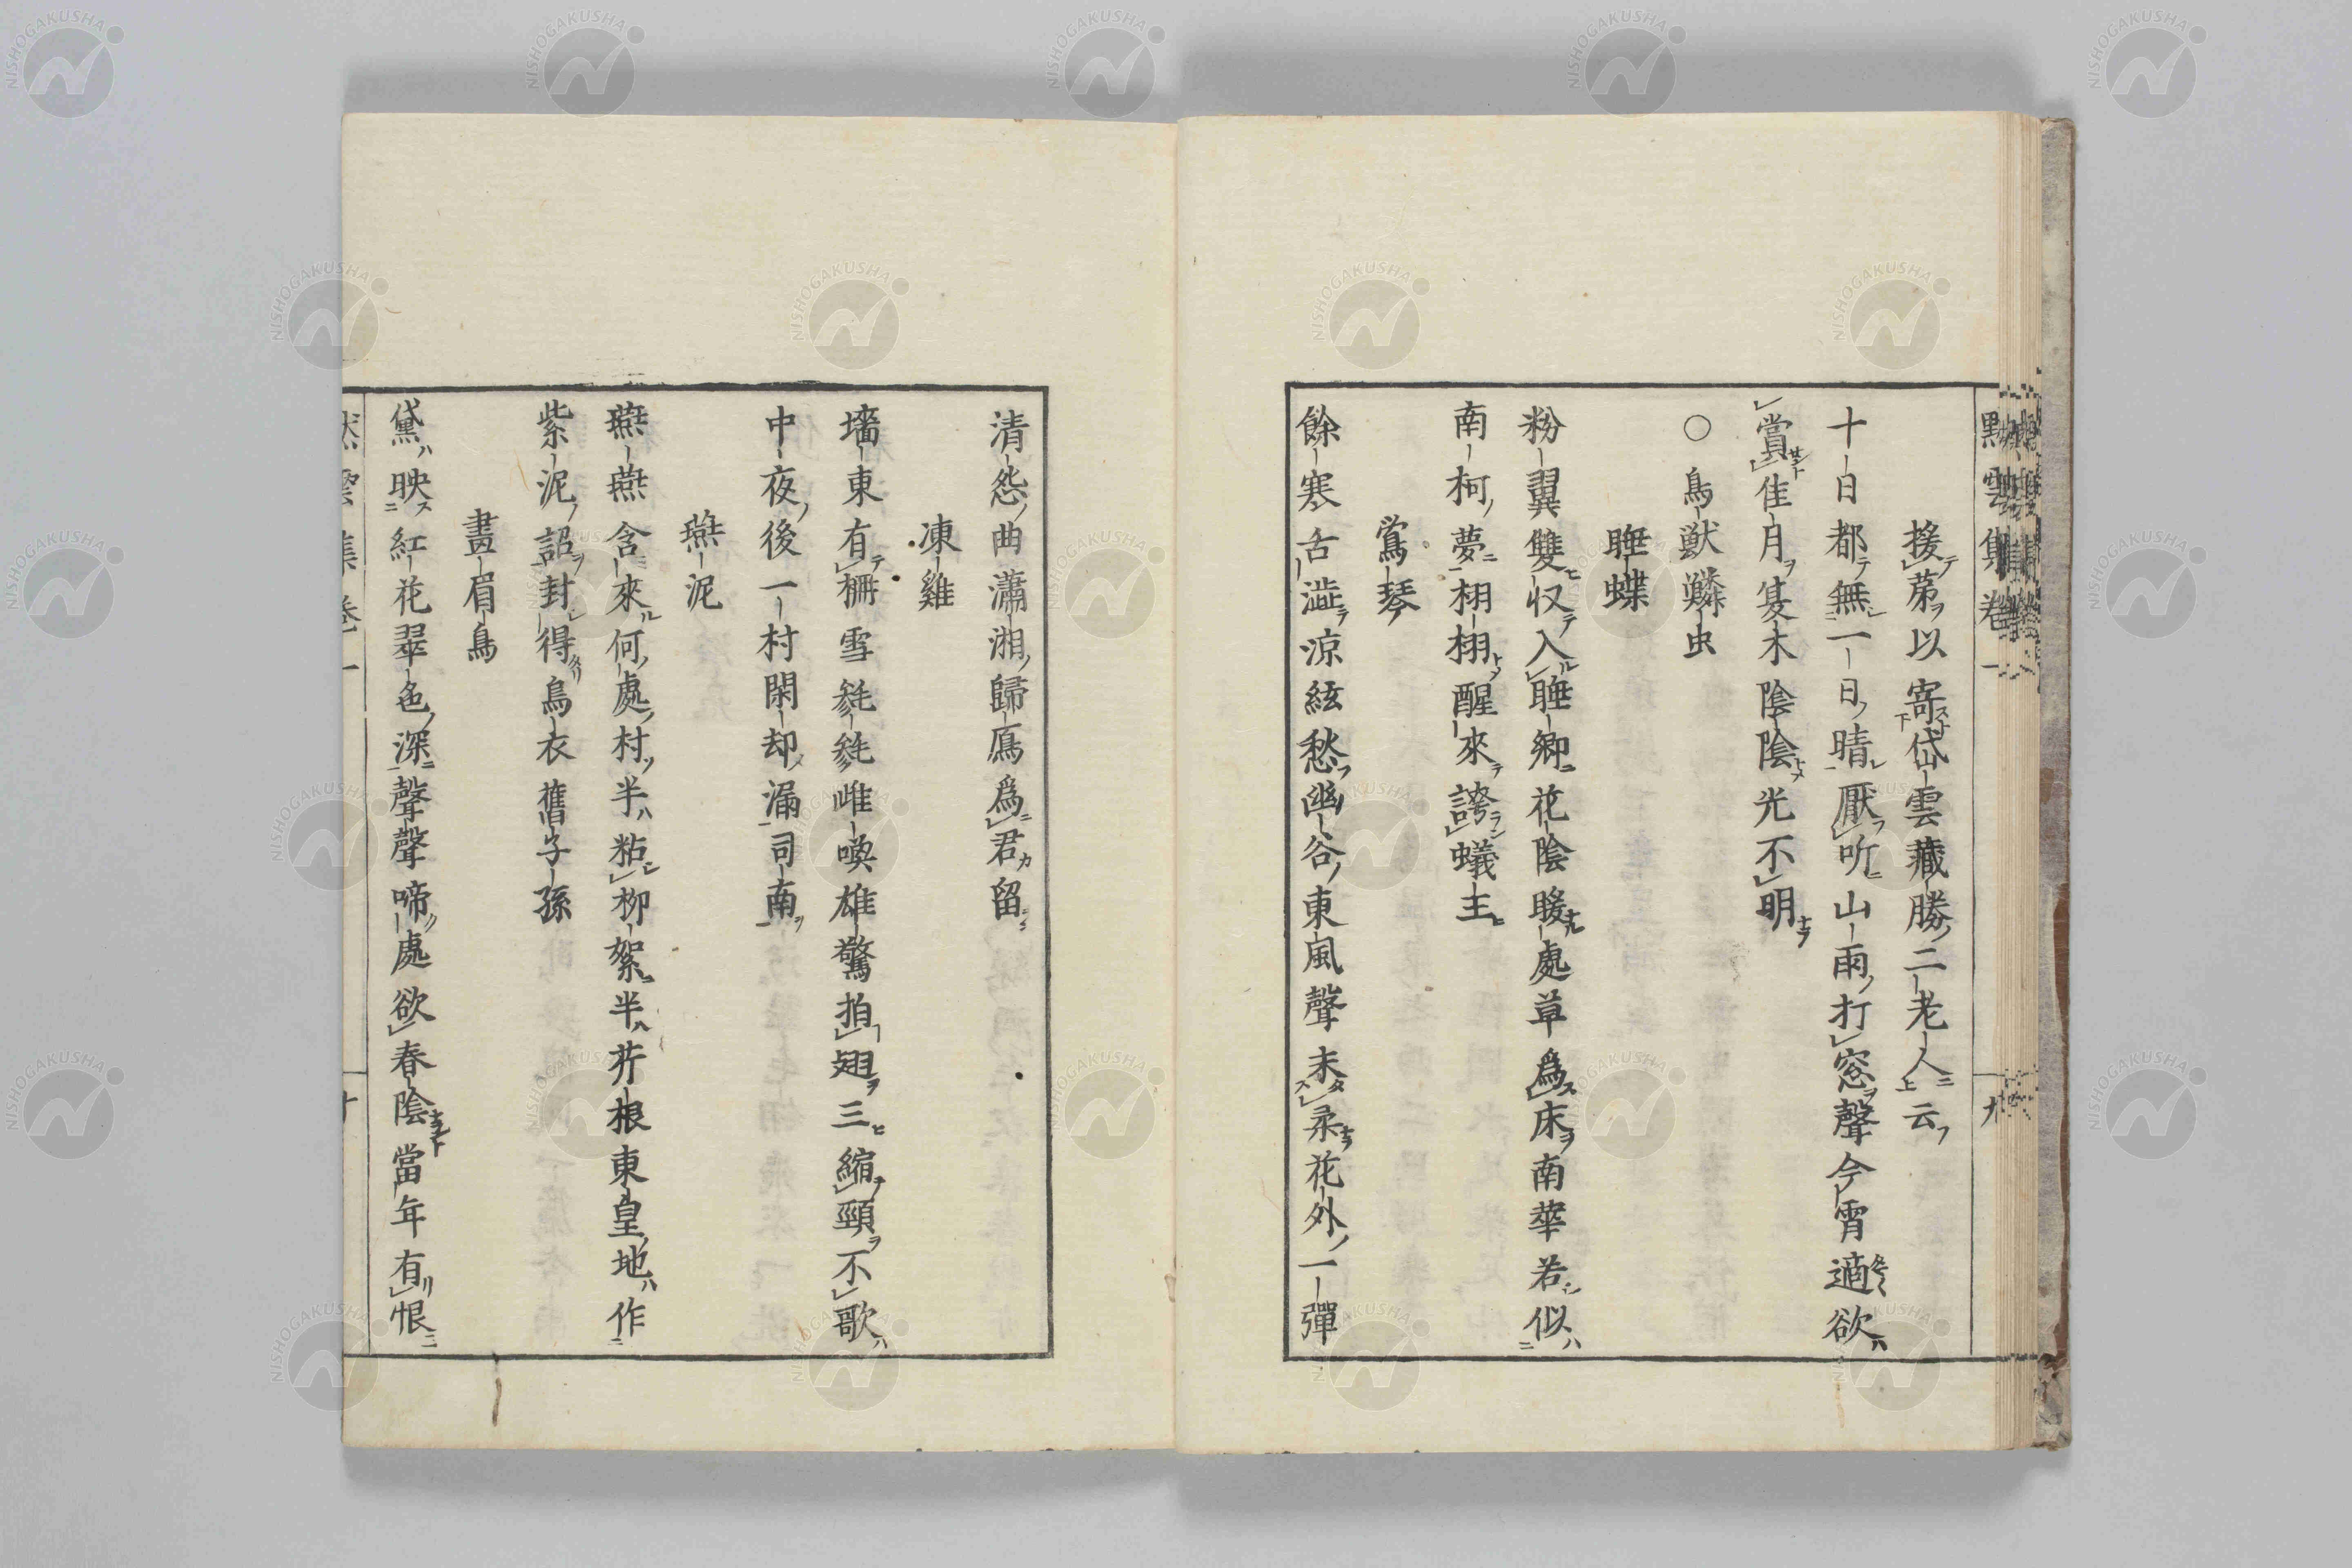 點雲集卷一
九
援筆以寄岱雲藏勝二老人云
十日都無一日晴厭听山雨打窓聲今宵適欲
賞佳月夏木陰陰光不明
○鳥獣鱗虫
睡蝶
粉翼雙収入睡郷花陰暖處草爲床南華若似
南柯夢栩栩醒來誇蟻王
鴬琴
餘寒舌澁涼絃愁幽谷東風聲未柔花外一彈
清怨曲瀟湘歸鴈爲君留
凍雞
墻東有柵雪毿毿雌喚雄驚拍翅三縮頸不歌
中夜後一村閑却漏司南
燕泥
燕燕含來何處村半粘柳絮半芹根東皇地作
紫泥詔封得烏衣舊子孫
畫眉鳥
黛映紅花翠色深聲聲啼處欲春陰當年有恨
NISHOGAKUSHA